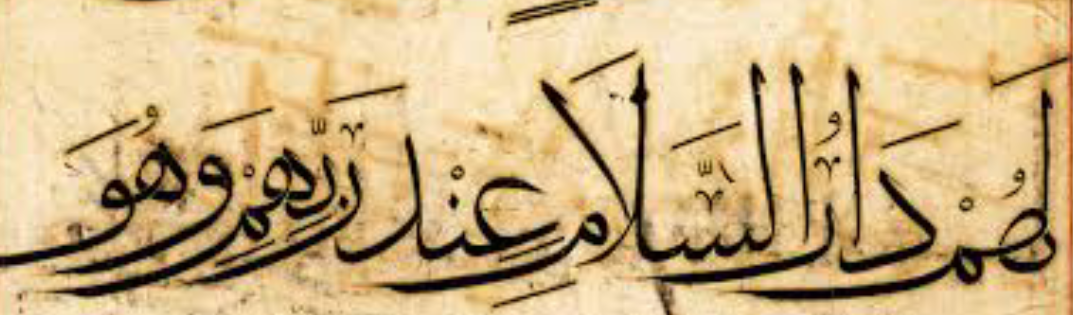 لَهُمْ دَارُ السَّلَامِ عِنْدَ رَبِّهِمْ وَهُوَ